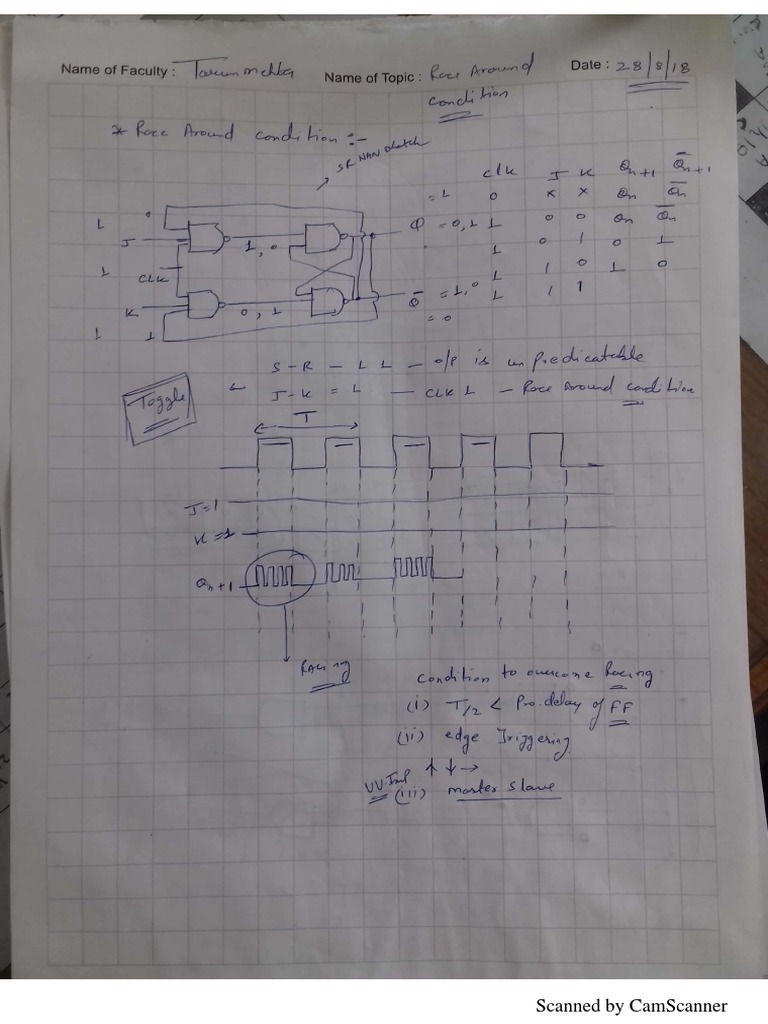 Name of Faculty : Tarun mehta Name of Topic : Race Around Date : 28/8/18
condition
* Race Around condition :-
SR NAN dlatch
clk J K Qn+1 Q̅n+1
= 1 0 x x Qn Q̅n
1 0 0 Qn Q̅n
1 0 1 0 1
1 1 0 1 0
1 1 1
1 0
J 1, 0 Q = 0, 1
1 CLK
K 0, 1 Q̅ = 1, 0
= 0
1 1
S - R - 1 1 - o/p is unpredicatable
Toggle ← J - K = 1 - CLK 1 - Race Around condition
T
J = 1
K = 1
Qn+1
RACing
condition to overcome Racing
(i) T/2 < Pro. delay of FF
(ii) edge Triggering
↑ ↓ →
VV. Imp (iii) master slave
Scanned by CamScanner